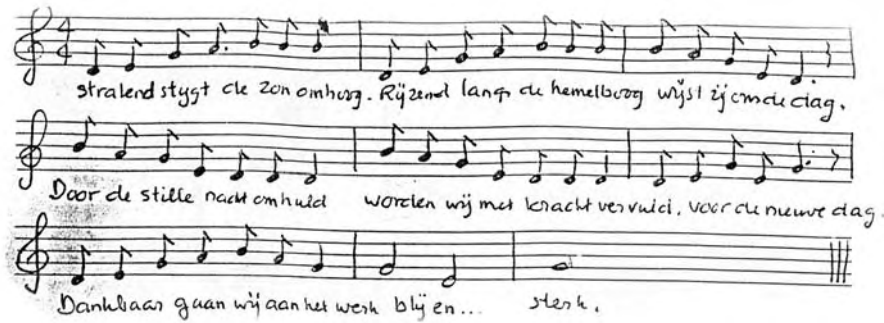 4
4
stralend stygt de zon omhoog. Rijzend langs de hemelboog wijst zij om de dag.
Door de stille nacht omhuld worden wij met kracht vervuld, voor de nieuwe dag.
Dankbaar gaan wij aan het werk blij en... sterk.